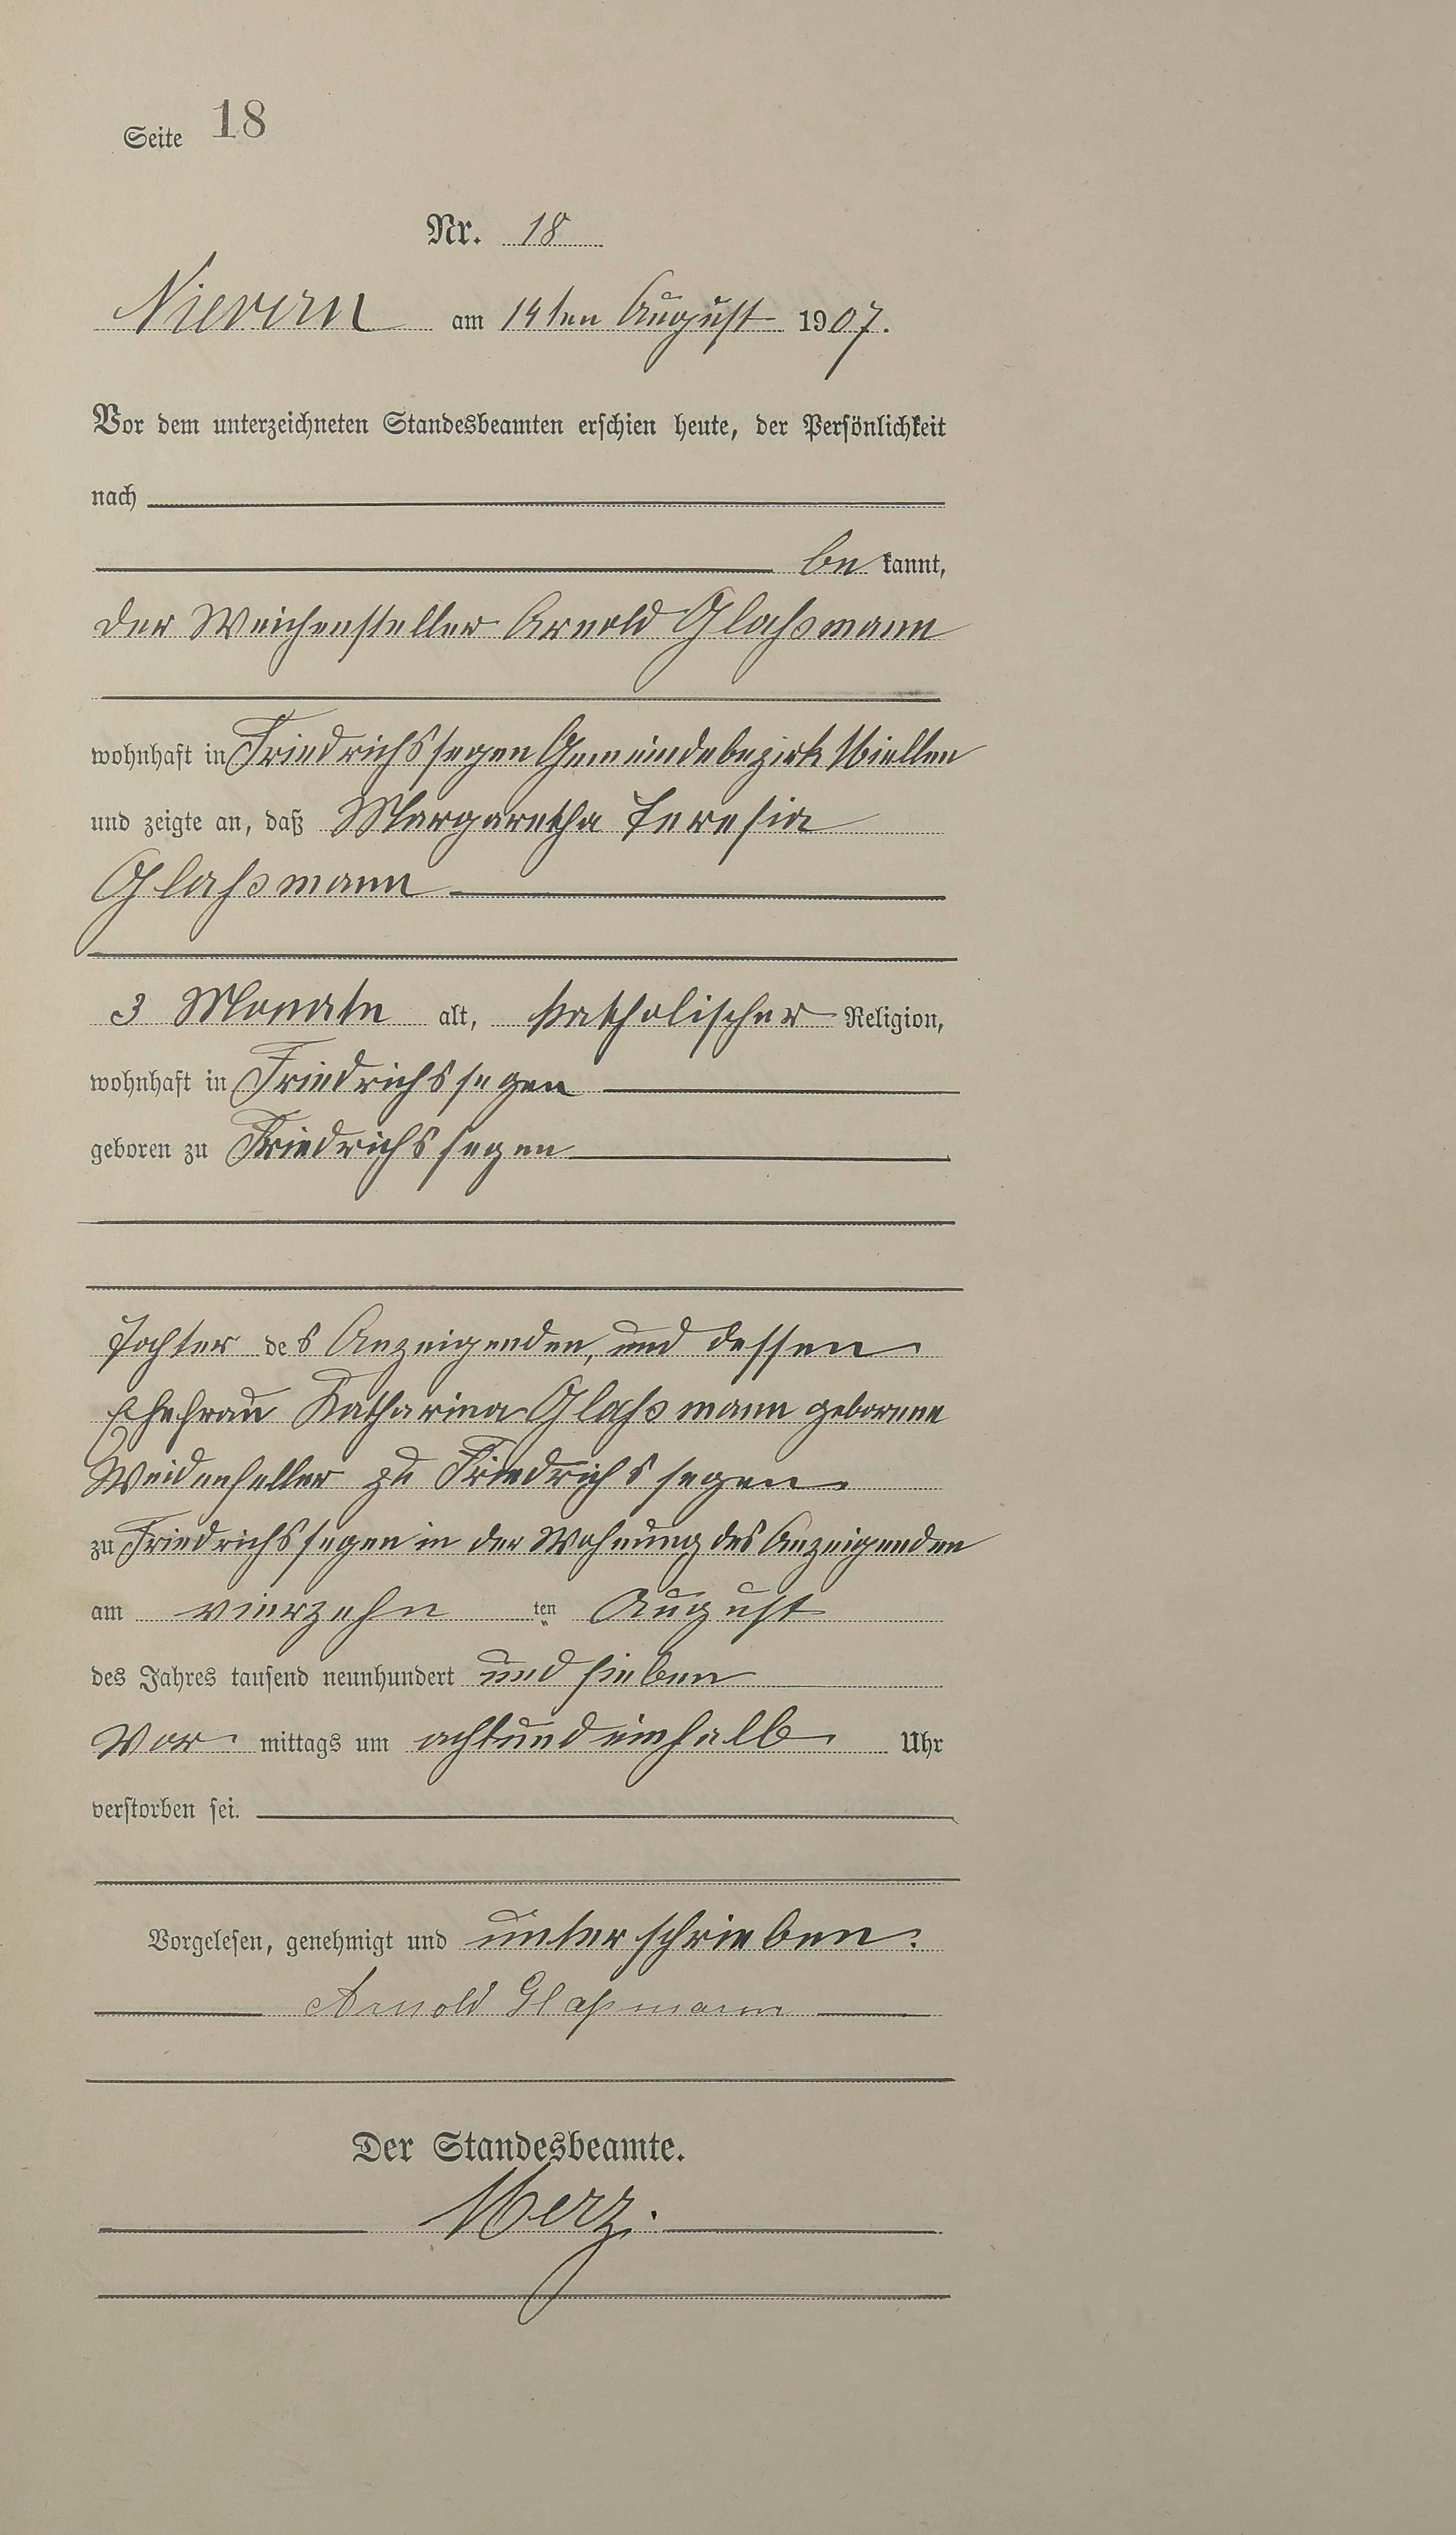 Seite 18
Nr. 18
Nievern am 14ten August 1907.
Vor dem unterzeichneten Standesbeamten erschien heute, der Persönlichkeit
nach
be kannt,
der Weichensteller Arnold Glaßmann
wohnhaft in Friedrichssegen Gemeindebezirk Miellen
und zeigte an, daß Margaretha Teresia
Glaßmann
3 Monate alt, katholischer Religion,
wohnhaft in Friedrichssegen
geboren zu Friedrichssegen
Tochter des Anzeigenden, und dessen
Ehefrau Katharina Glaßmann geborene
Weidenfeller zu Friedrichssegen
zu Friedrichssegen in der Wohnung des Anzeigenden
am vierzehn ten August
des Jahres tausend neunhundert und sieben
Vor mittags um achtundeinhalb Uhr
verstorben sei.
Vorgelesen, genehmigt und unterschrieben.
Arnold Glaßmann
Der Standesbeamte.
Merz.